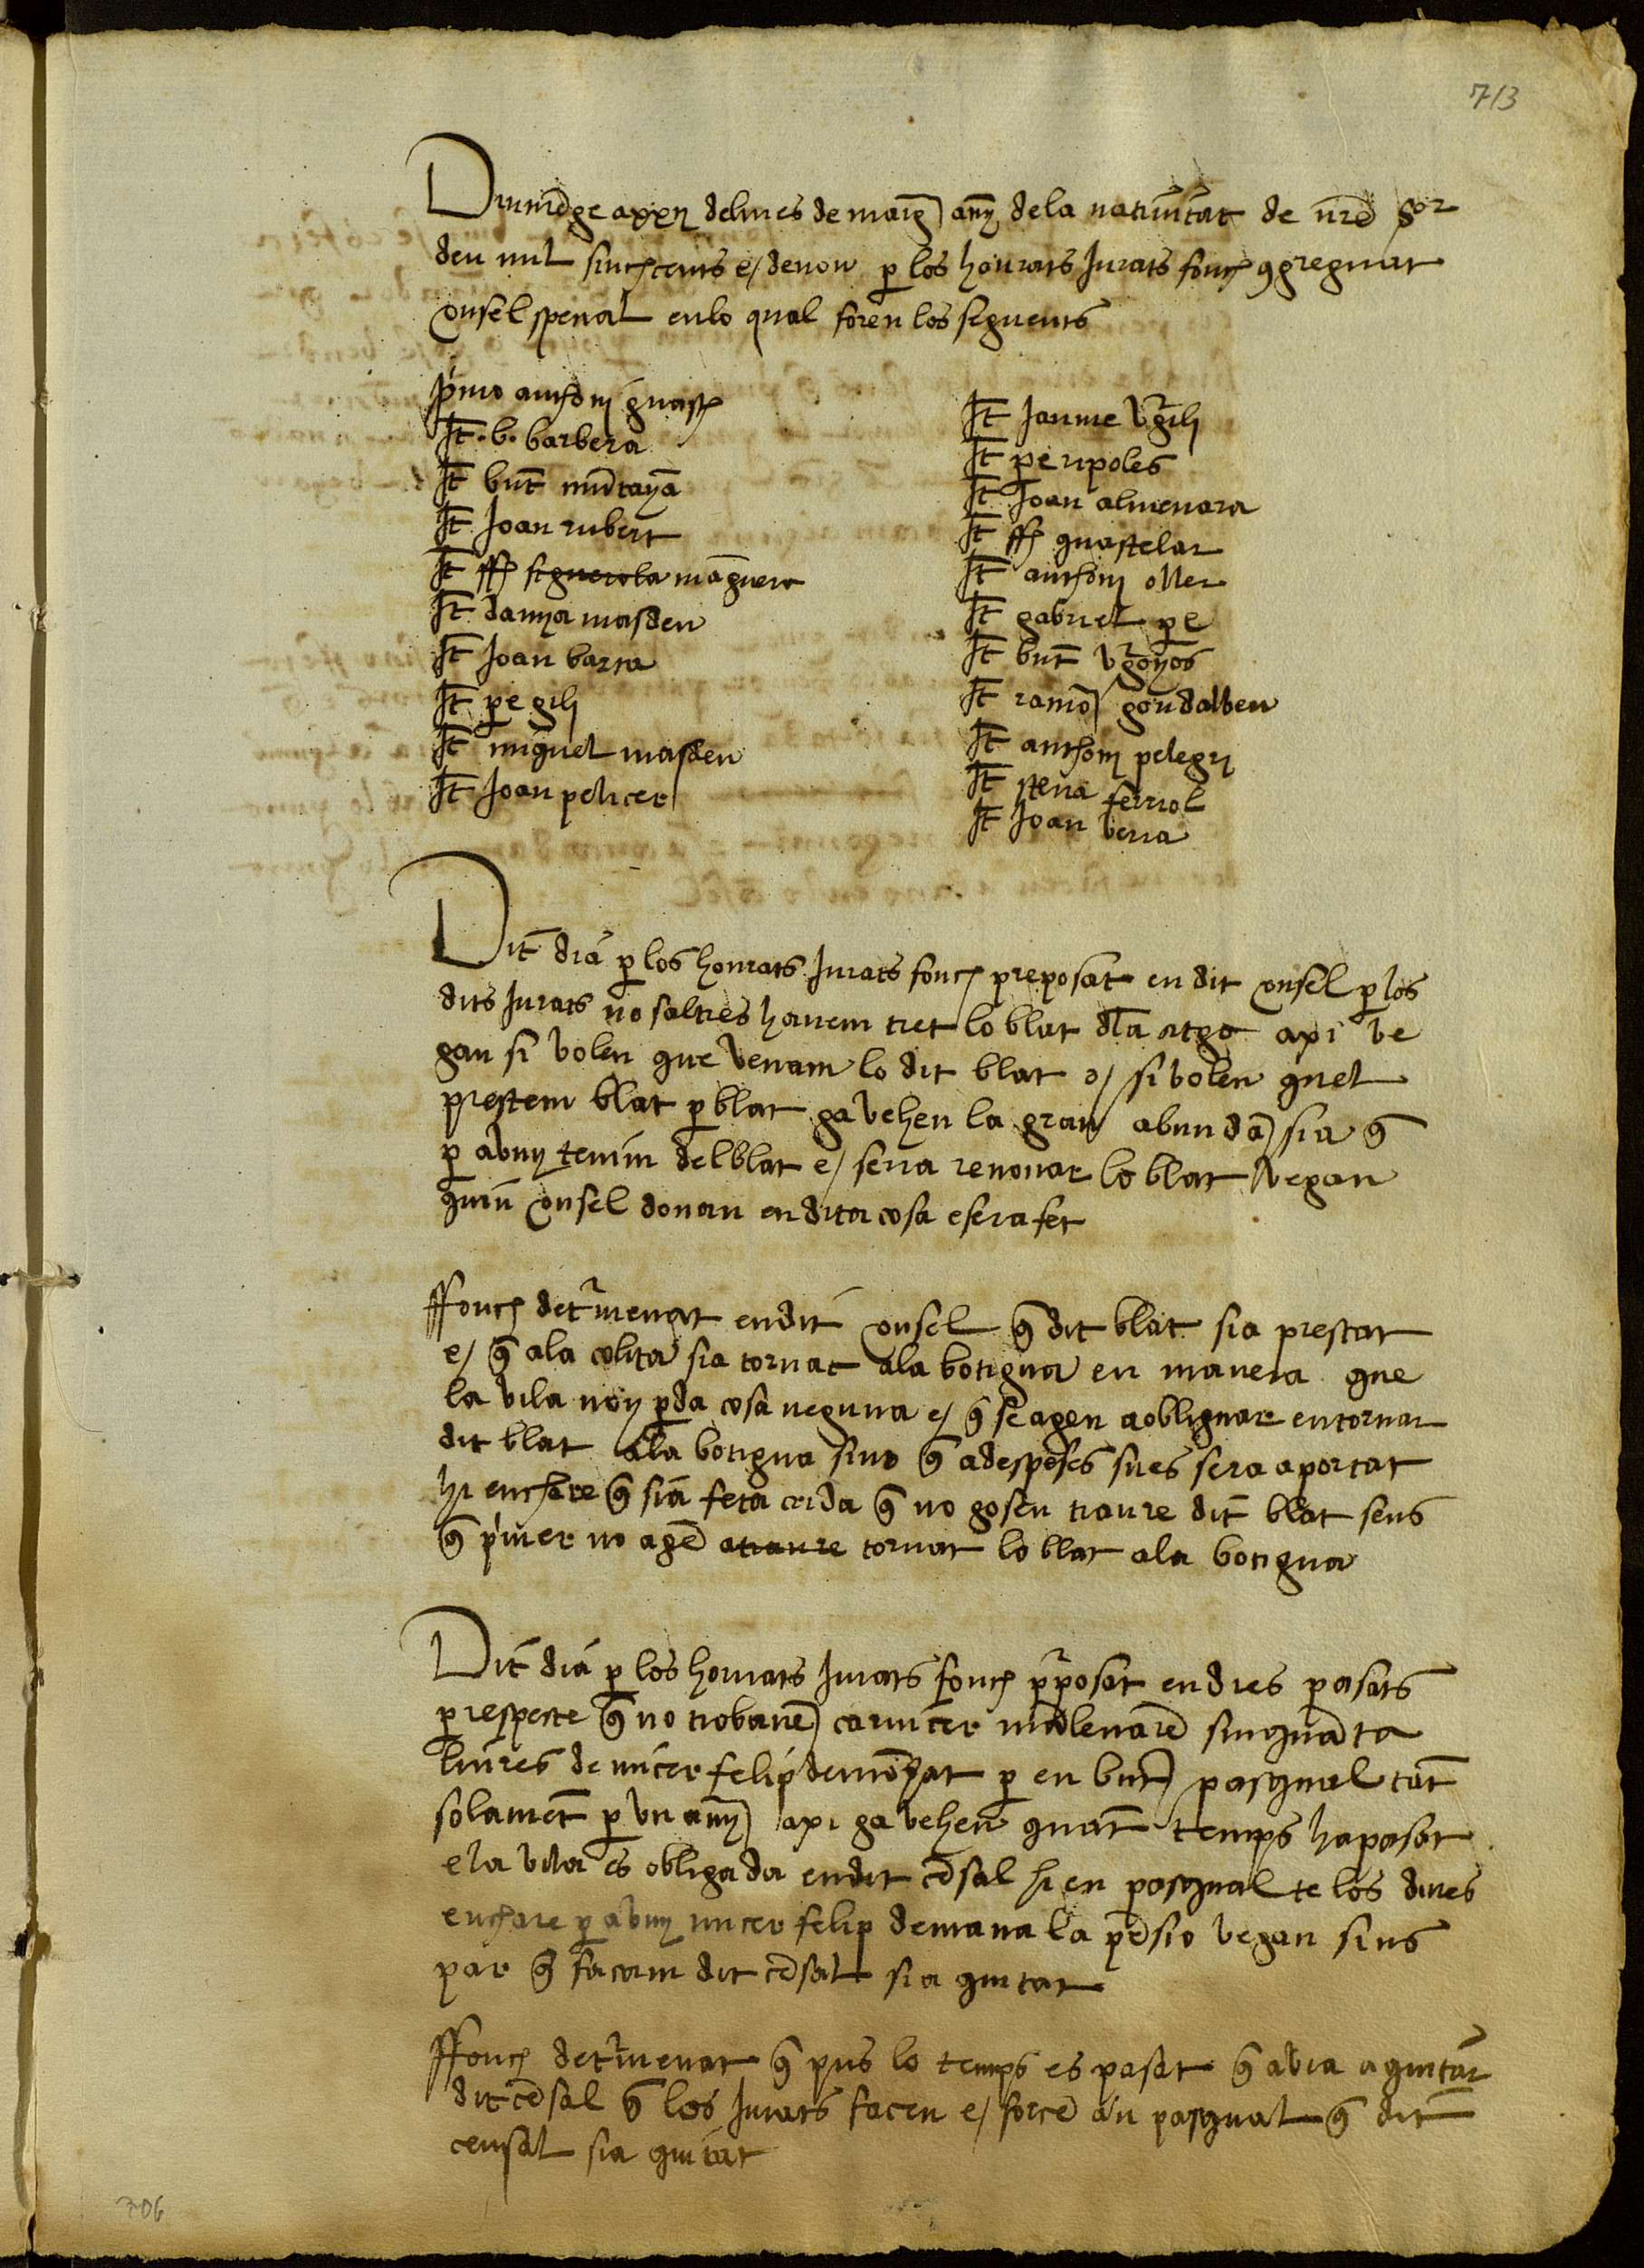 713
Diume͂ge a xxıȷ del mes de maig any de la natiuitat de n̅re̅ Sor
deu mil sinchcents e/ denou p̲ los honrats Jurats fonch ꝯgreguat
consel spesial en lo qual foren los seguents
p̍imo anthonj guasch
It̅ .b. barbera
It̅ bnt̅ mu̅taya̅
It̅ Joan rubert
It̅ ff̅ figuerola maguera
It̅ damya masdeu
It̅ Joan barsa
It̅ p̲e gilj
It̅ miguel masdeu
It̅ Joan pelicer
It̅ Jaume v̍gilj
It̅ p̲e ripoles
It̅ Joan almenara
It̅ ff̅ quastelar
It̅ anthonj oller
It̅ gabriel p̲e
It̅ bnt̅ v̍goyos
It̅ ramo̅ goudalbeu
It̅ anthonj pelegrj
It̅ steua ferriol
It̅ Joan veria
Dit dia p̲ los honrats Jurats fonch preposat en dit consel p̲ los
dits Jurats nosaltres hauem tret lo blat d̅la sitga api ve
gan si volen que venam lo dit blat o/ si volen quel
prestem blat p̲ blat ga vehen la gran abunda̅sia q̅
p̲ abuy tenim del blat e/ seria renouar lo blat vegan
quin consel donan en dita cosa e sera fet
ffonch det̍menat en dit consel q̅ dit blat sia prestat
e/ q̅ a la colita sia tornat a la botigua en manera que
la vila noy p̲da cosa neguna e/ q̅ se agen a obliguar en tornar
dit blat a la botigua sino q̅ a despeses sues sera aportat
hi enchare q̅ sia feta crida q̅ no gosen traure dit blat sens
q̅ p̍mer no age̅ a traure tornat lo blat a la botigua
Dit dia p̲ los honrats Jurats fonch p̍posat en dies pasats
p̲ respecte q̅ no trobaue̅ carnicer ma̅leuare̅ sinqua̅ta
liures de micer felip de mo̅zat p̲ en bnt̅ pasqual tant
solament̅ p̲ vn any api ga vehen quant̅ temps ha pasat
e la vila es obligada en dit ce̅sal hi en pasqual te los dines
enchare p̲ abuy micer felip demana la pe̅sio vegan sins
par q̅ facam dit ce̅sal sia quitat
ffonch det̍menat q̅ pus lo temps es pasat q̅ abia a quitar
dit ce̅sal q̅ los Jurats facen e/ force̅ a̍n pasqual q̅ dit
censal sia quitat
306